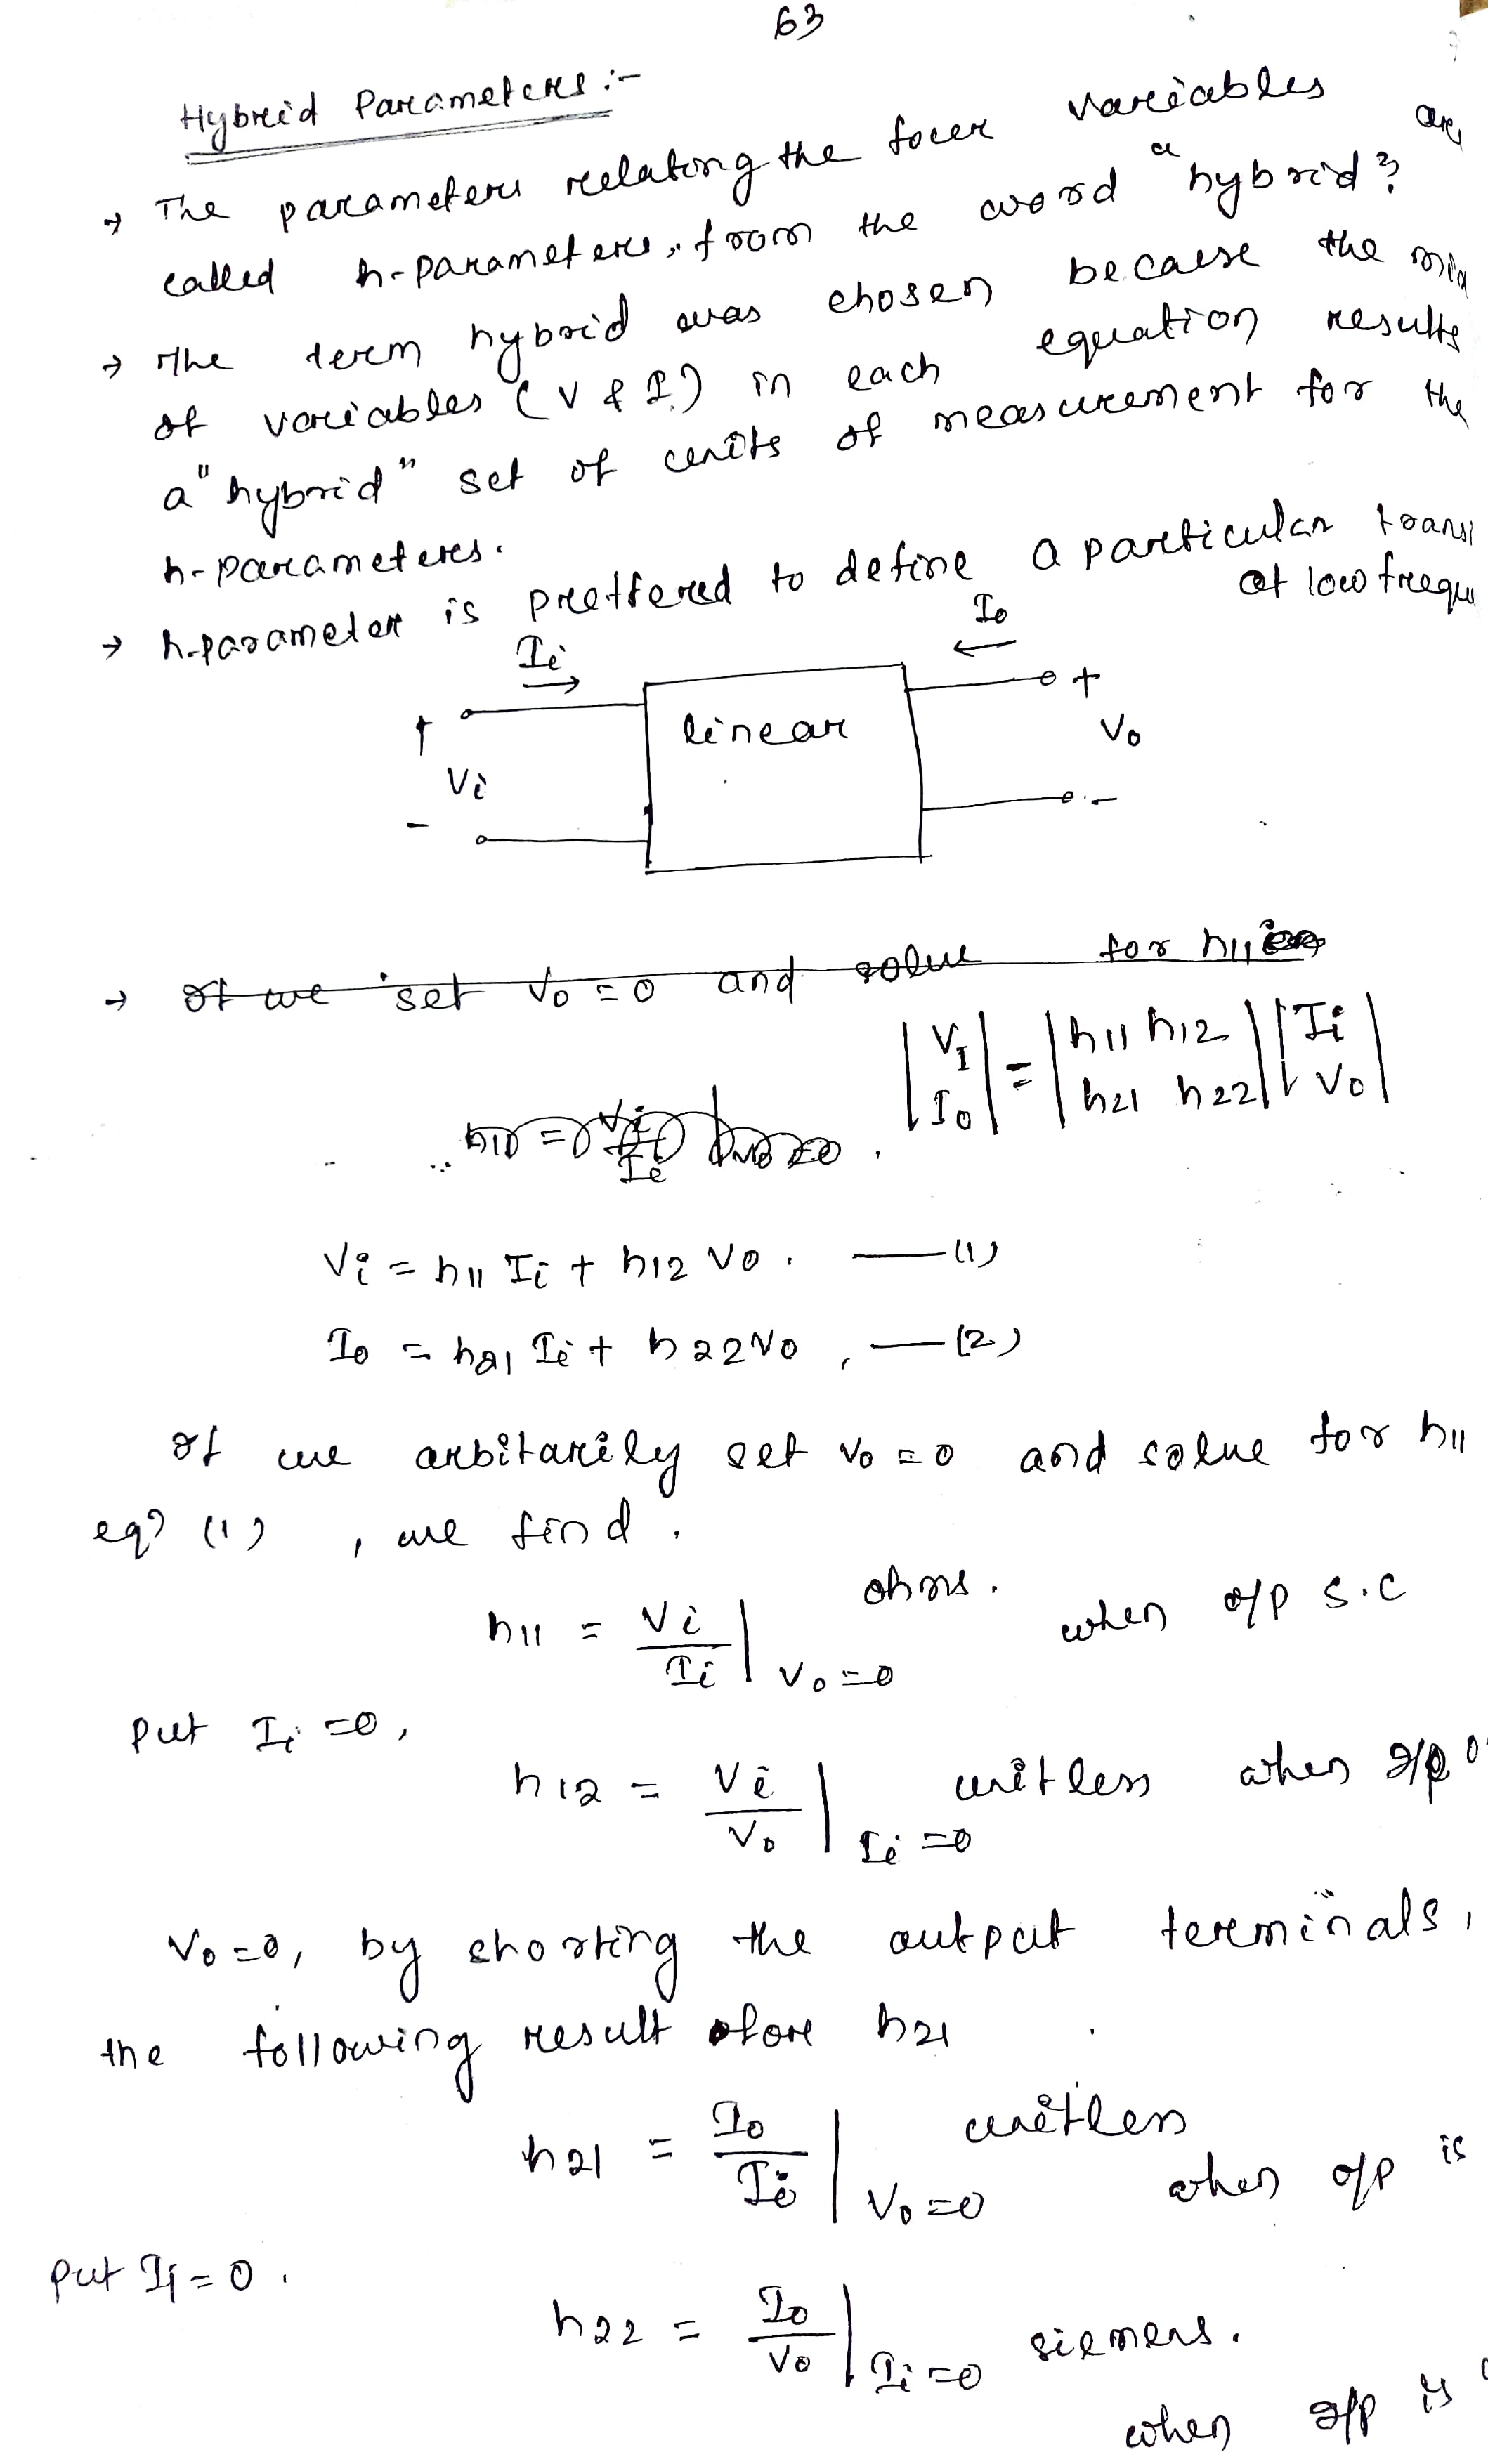 63
Hybrid Parameters :-
→ The parameters relating the four variables are
called h-parameters, from the word "hybrid".
→ The term hybrid was chosen because the mix
of variables (V & I) in each equation results
a "hybrid" set of units of measurement for the
h-parameters.
→ h-parameter is preffered to define a particular transi
at low frequ
Ii
→
Io
←
+
Vi
-
linear
+
Vo
-
→ If we set Vo = 0 and solve for h11
|VI| = |h11 h12| |Ii|
|Io| |h21 h22| |Vo|
Vi = h11 Ii + h12 Vo. — (1)
Io = h21 Ii + h22 Vo, — (2)
If we arbitarily set Vo = 0 and solve for h11
eqn (1) , we find.
h11 = Vi/Ii | Vo = 0 ohms. when o/p s.c
Put Ii = 0,
h12 = Vi/Vo | Ii = 0 unitless when I/p
Vo = 0, by shorting the output terminals,
the following result for h21
h21 = Io/Ii | Vo = 0 unitless when o/p is
Put Ii = 0.
h22 = Io/Vo | Ii = 0 siemens.
when I/p is